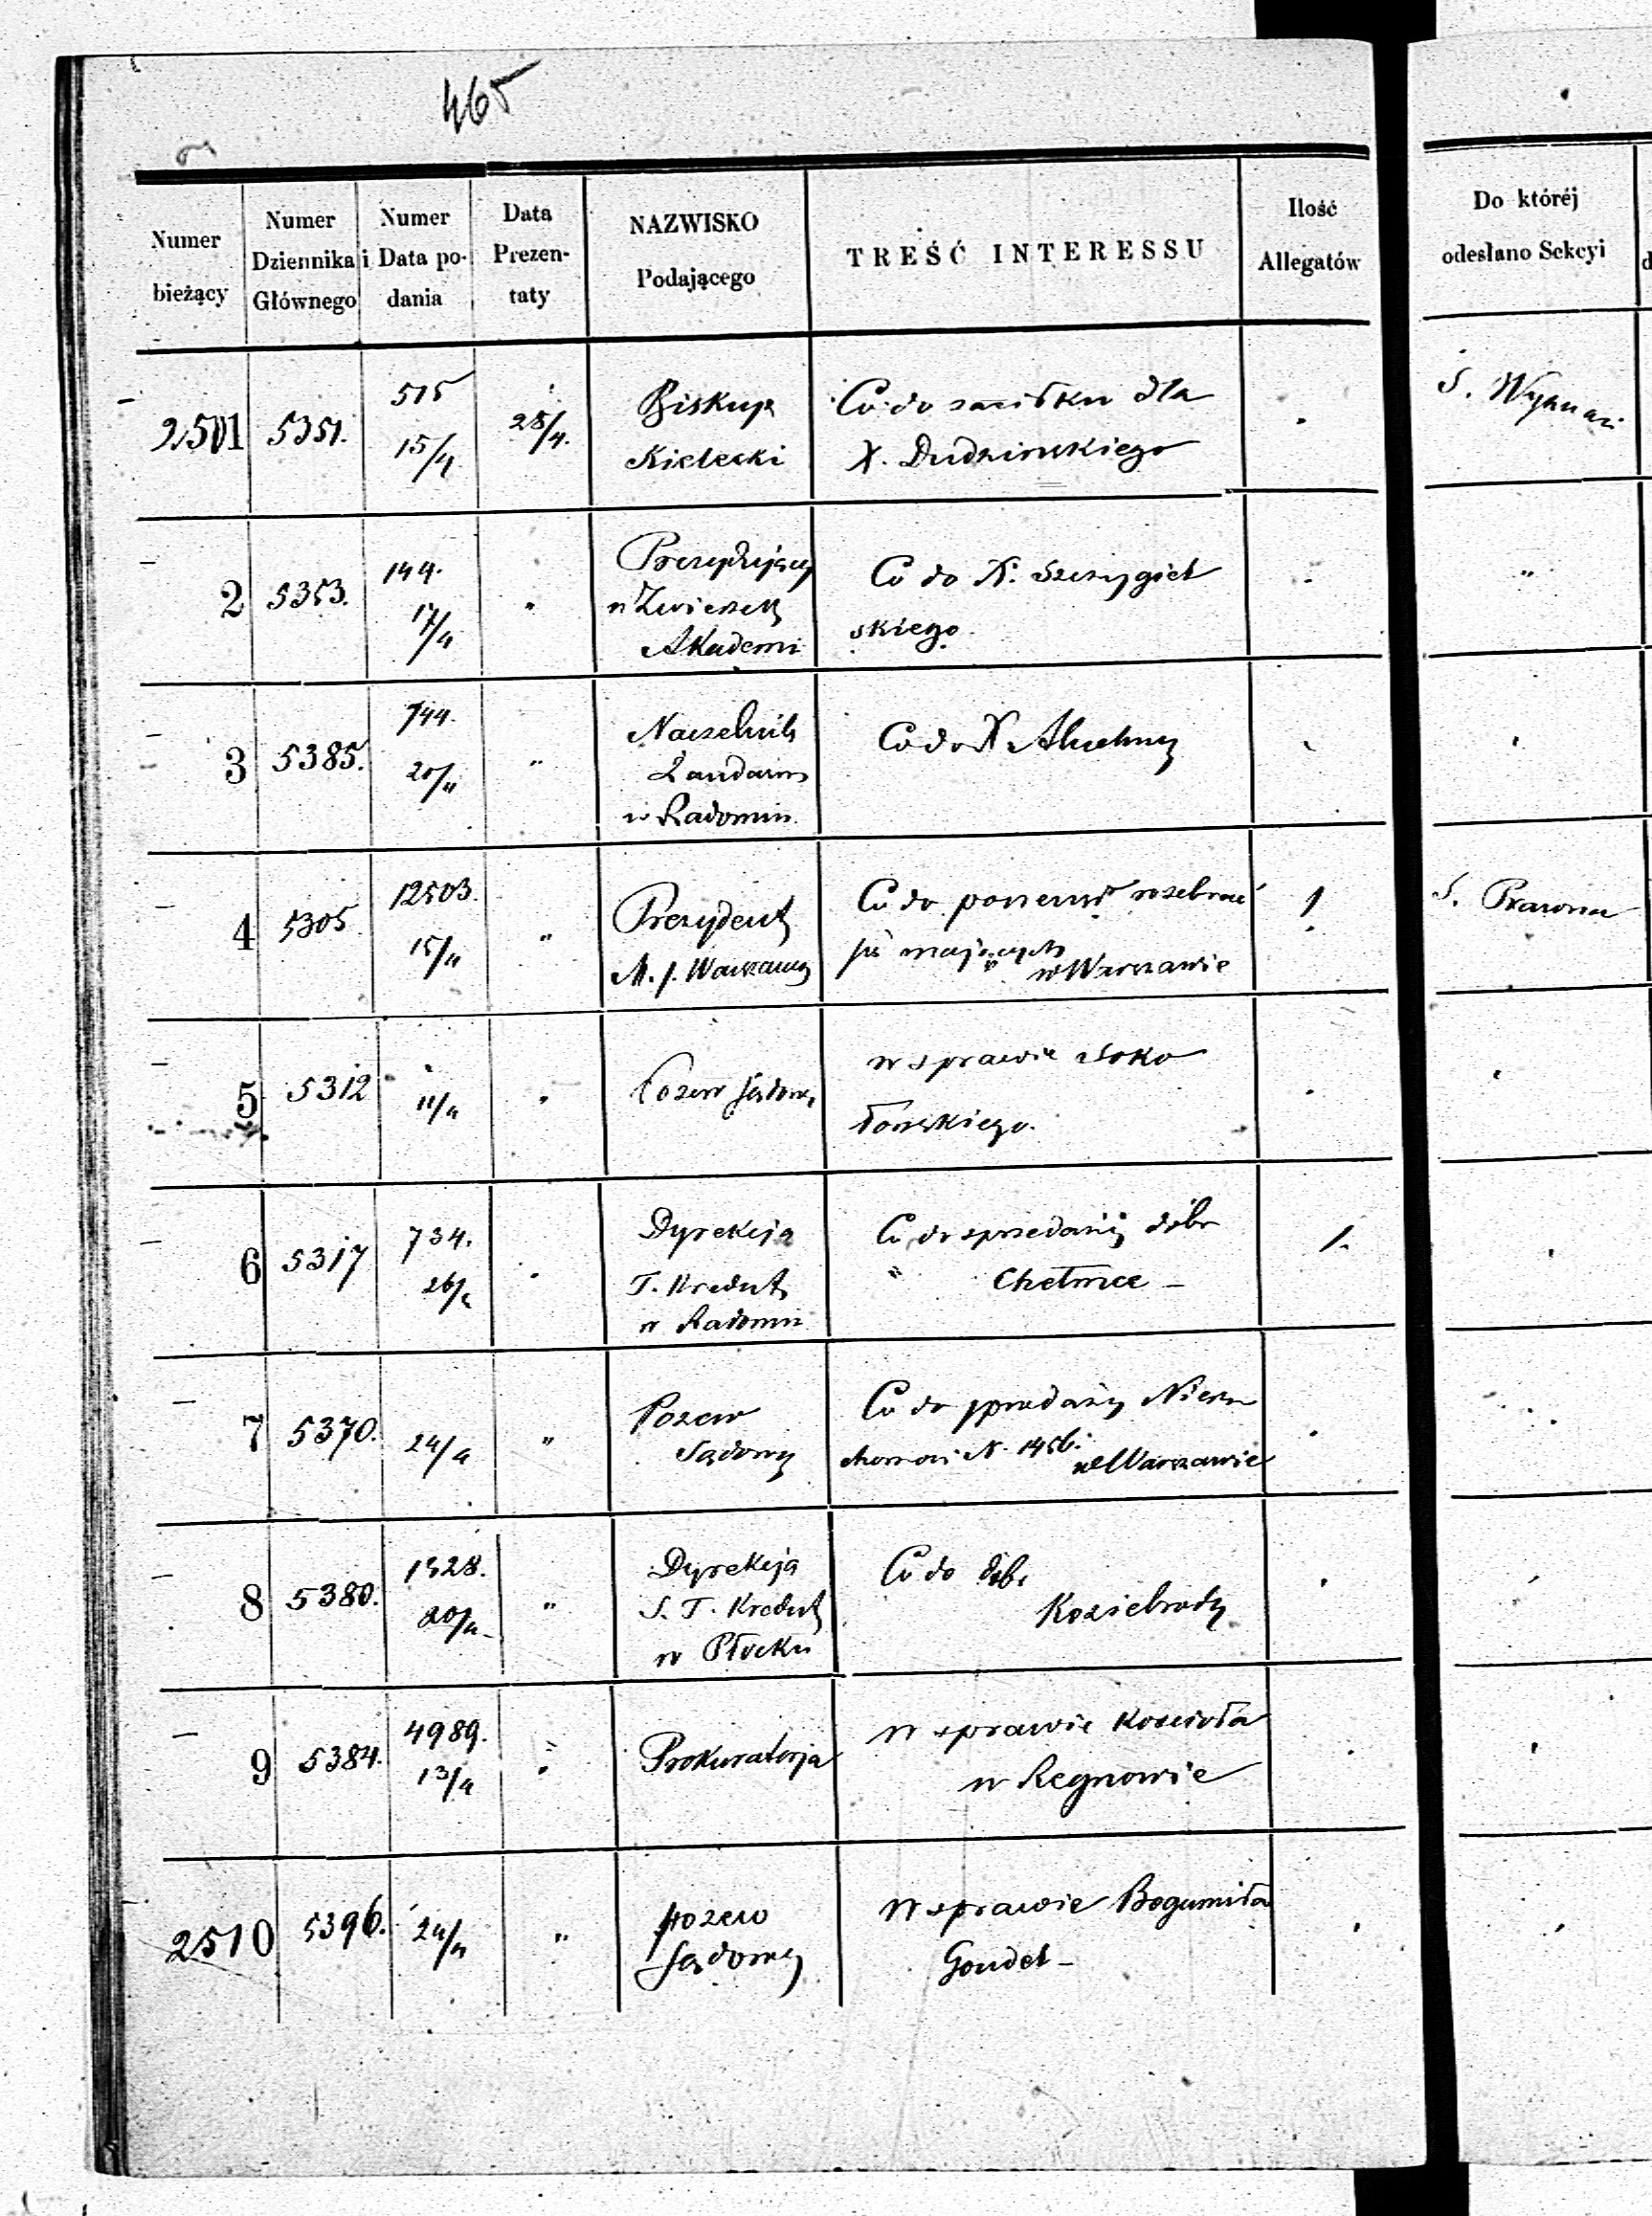 465
Numer bieżący
Numer Dziennika Głównego
Numer i Data podania
Data Prezentaty
NAZWISKO Podającego
TREŚĆ INTERESSU
Ilość Allegatów
Do któréj odesłano Sekcyi
2501 5351. 515 15/4 28/4. Biskup Co do zasiłku dla S.
Kielecki X. Dudzińskiego
2 5353. 144. 17/4 " Co do X. Szczygiel "
Akademi skiego.
3 5385. 744. 20/4 " Naczelnik Co do X.
Żandarm
w Radomiu
4 5305 12503. 15/4 " Prezydent Co do rozebrać 1 S. Prawna
M. s. Warszawy się mających w Warszawie
5 5312 11/4 " Pozew Sądowy w sprawie Soko
łowskiego.
6 5317 734. Dyrekcja Co do sprzedaży dóbr 1.
T. Kredyt Chełmce –
w Radomiu
7 5370. 24/4 " Pozew Co do sprzedaży Nieru
Sądowy chomości N. 1456. w Warszawie
8 5380. 1328. 20/4 " Dyrekcja Co do dóbr
S. T. Kredyt Koziebrody
w Płocku
9 5384. 4989. 13/4 " Prokuratorja W sprawie Kościoła
w Regnowie
2510 5396. 24/4 " pozew W sprawie Bogumiła
Sądowy Goudet –